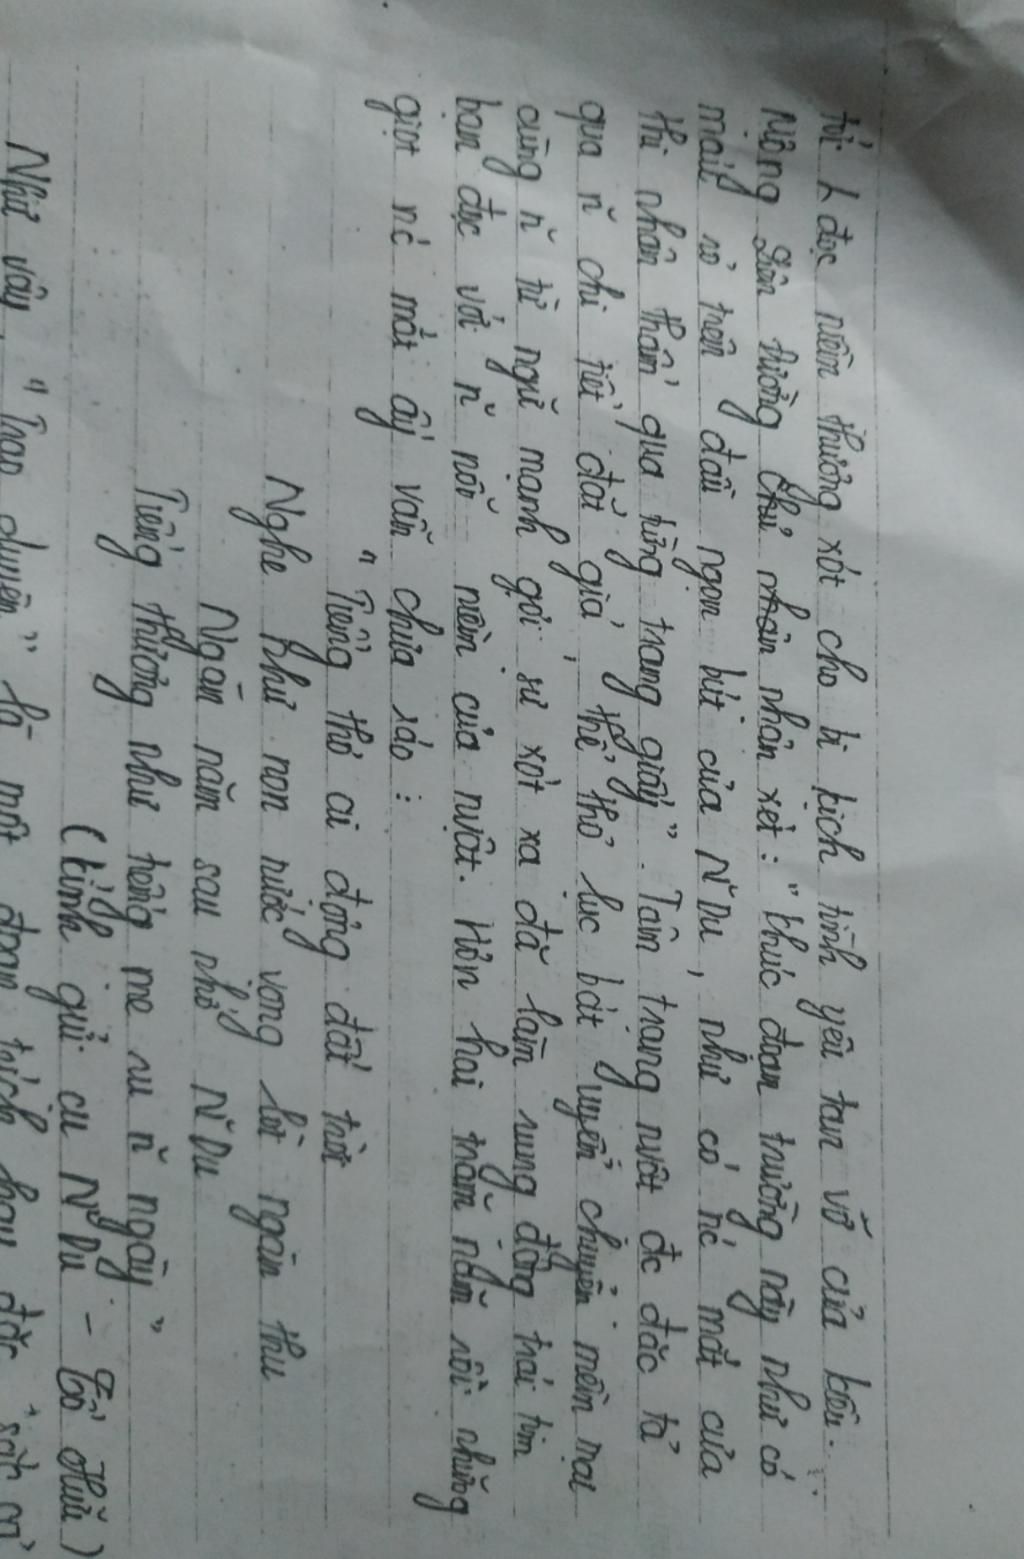 tới L đọc niềm thương xót cho bi kịch tình yêu tan vỡ của Kiều.
Mộng Liên Đường Chủ nhân nhận xét: "khúc đoạn trường này như có
máu rỏ trên đầu ngọn bút của Ng~ Du, như có nc mắt của
thi nhân thấm qua từng trang giấy". Tâm trạng nvật đc đặc tả
qua n~ chi tiết đắt giá, thể thơ lục bát uyển chuyển mềm mại
cùng n~ từ ngữ mạnh gợi sự xót xa đã làm rung động trái tim
bạn đọc với n~ nỗi niềm của nvật. Hơn hai trăm năm rồi những
giọt nc mắt ấy vẫn chưa ráo:
"Tiếng thơ ai động đất trời
Nghe như non nước vọng lời ngàn thu
Ngàn năm sau nhớ Ng~ Du
Tiếng thương như tiếng mẹ ru n~ ngày"
(Kính gửi cụ Ng~ Du - Tố Hữu)
Như vậy, "Trao duyên" là một đoạn trích hay, đặc sắc